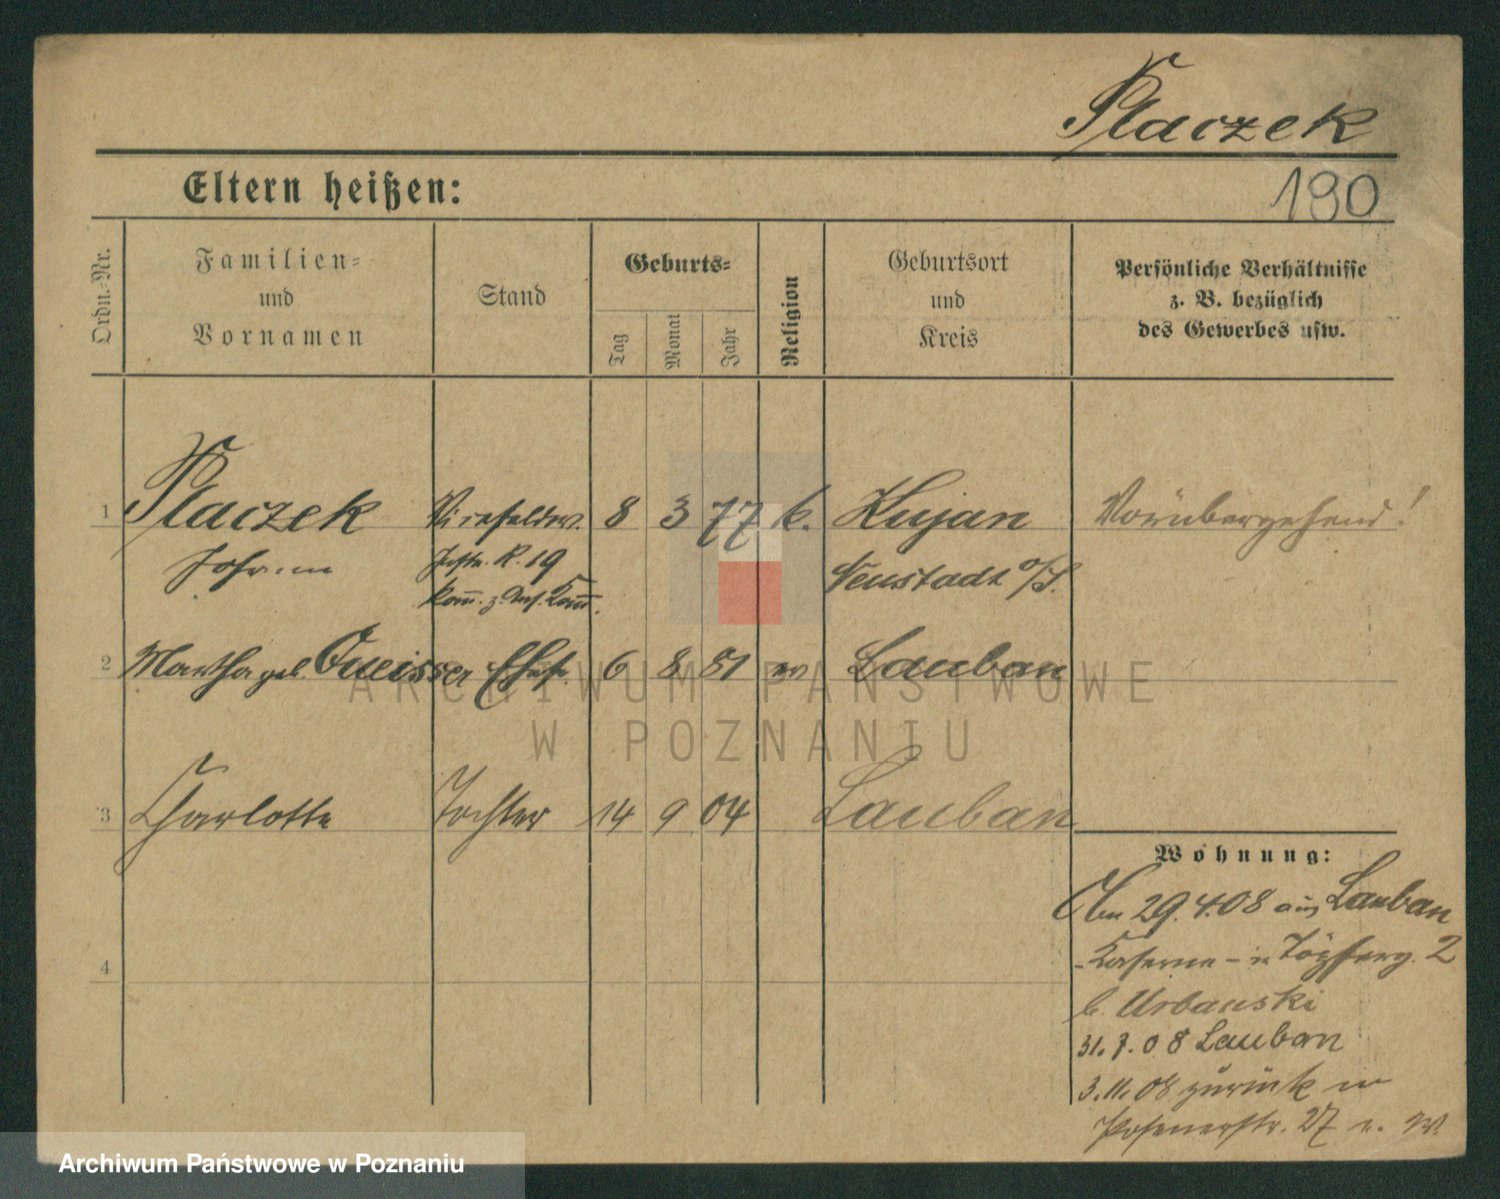 Placzek
Eltern heißen:
190
Ordn.-Nr.
Familien-
und
Vornamen
Stand
Geburts-
Tag
Monat
Jahr
Religion
Geburtsort
und
Kreis
Persönliche Verhältnisse
z. B. bezüglich
des Gewerbes usw.
1 Placzek Vizefeldw. 8 3 77 k. Kujan Vorübergehend!
Johann Inftr. R. 19 Neustadt o/S.
Kom. z.
2 Martha geb. Queisser Ehefr. 6 8 81 ev Lauban
3 Charlotte Tochter 14 9 04 Lauban
4
Wohnung:
Am 29.4.08 aus Lauban
-Kaserne- in Töpferg. 2
b. Urbanski
31.7.08 Lauban
3.11.08 zurück in
Posenerstr. 27 n. W.
ARCHIWUM PAŃSTWOWE
W POZNANIU
Archiwum Państwowe w Poznaniu